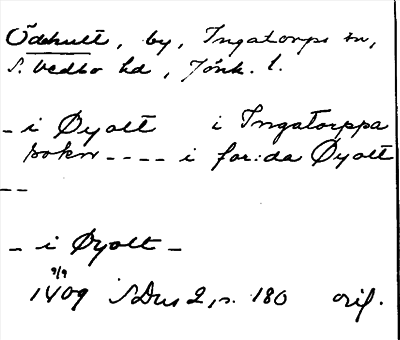 Ödehult, by, Ingatorps sn,
S. Vedbo hd, Jönk. l.
– i Øyolt i Ingatorppa
sokn ---- i for:da Øyolt
--
– i Øyolt –
9/9
1409 SDns 2, s. 180 orig.